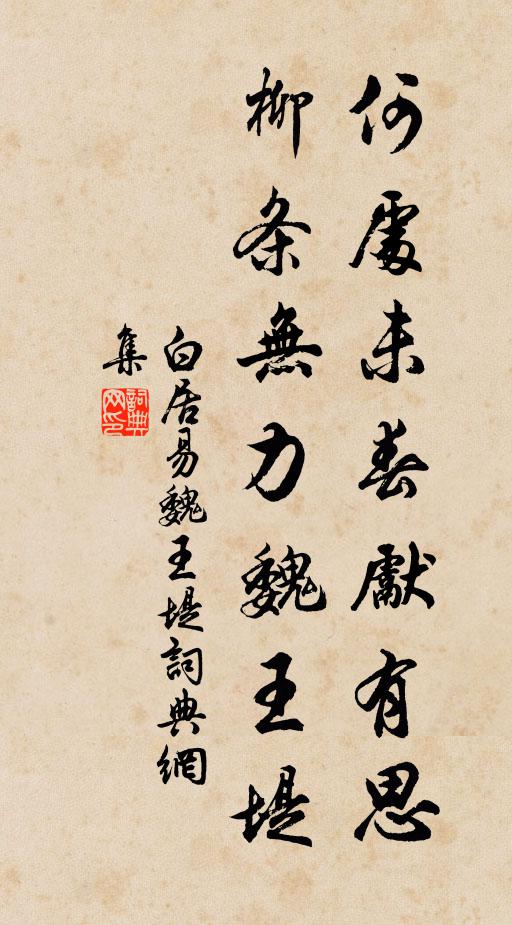 何處未春獻有思
柳条無力魏王堤
白居易魏王堤詞典網
集
詞典
网印